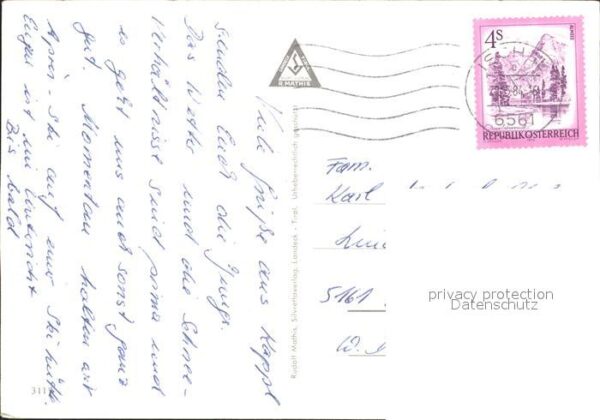 Viele Grüße aus Kappl
senden Euch die Jungs.
Das Wetter und die Schnee-
verhältnisse sind prima und
es geht uns auch sonst ganz
gut. Momentan halten wir
Après-Ski auf einer Skihütte.
Euer ist im Unterricht.
Bis bald
R MATHIS
Rudolf Mathis, Silvrettaverlag, Landeck - Tirol. Urheberrechtlich geschützt
311
4S
6561
REPUBLIK ÖSTERREICH
Fam.
Karl
5161
privacy protection
Datenschutz